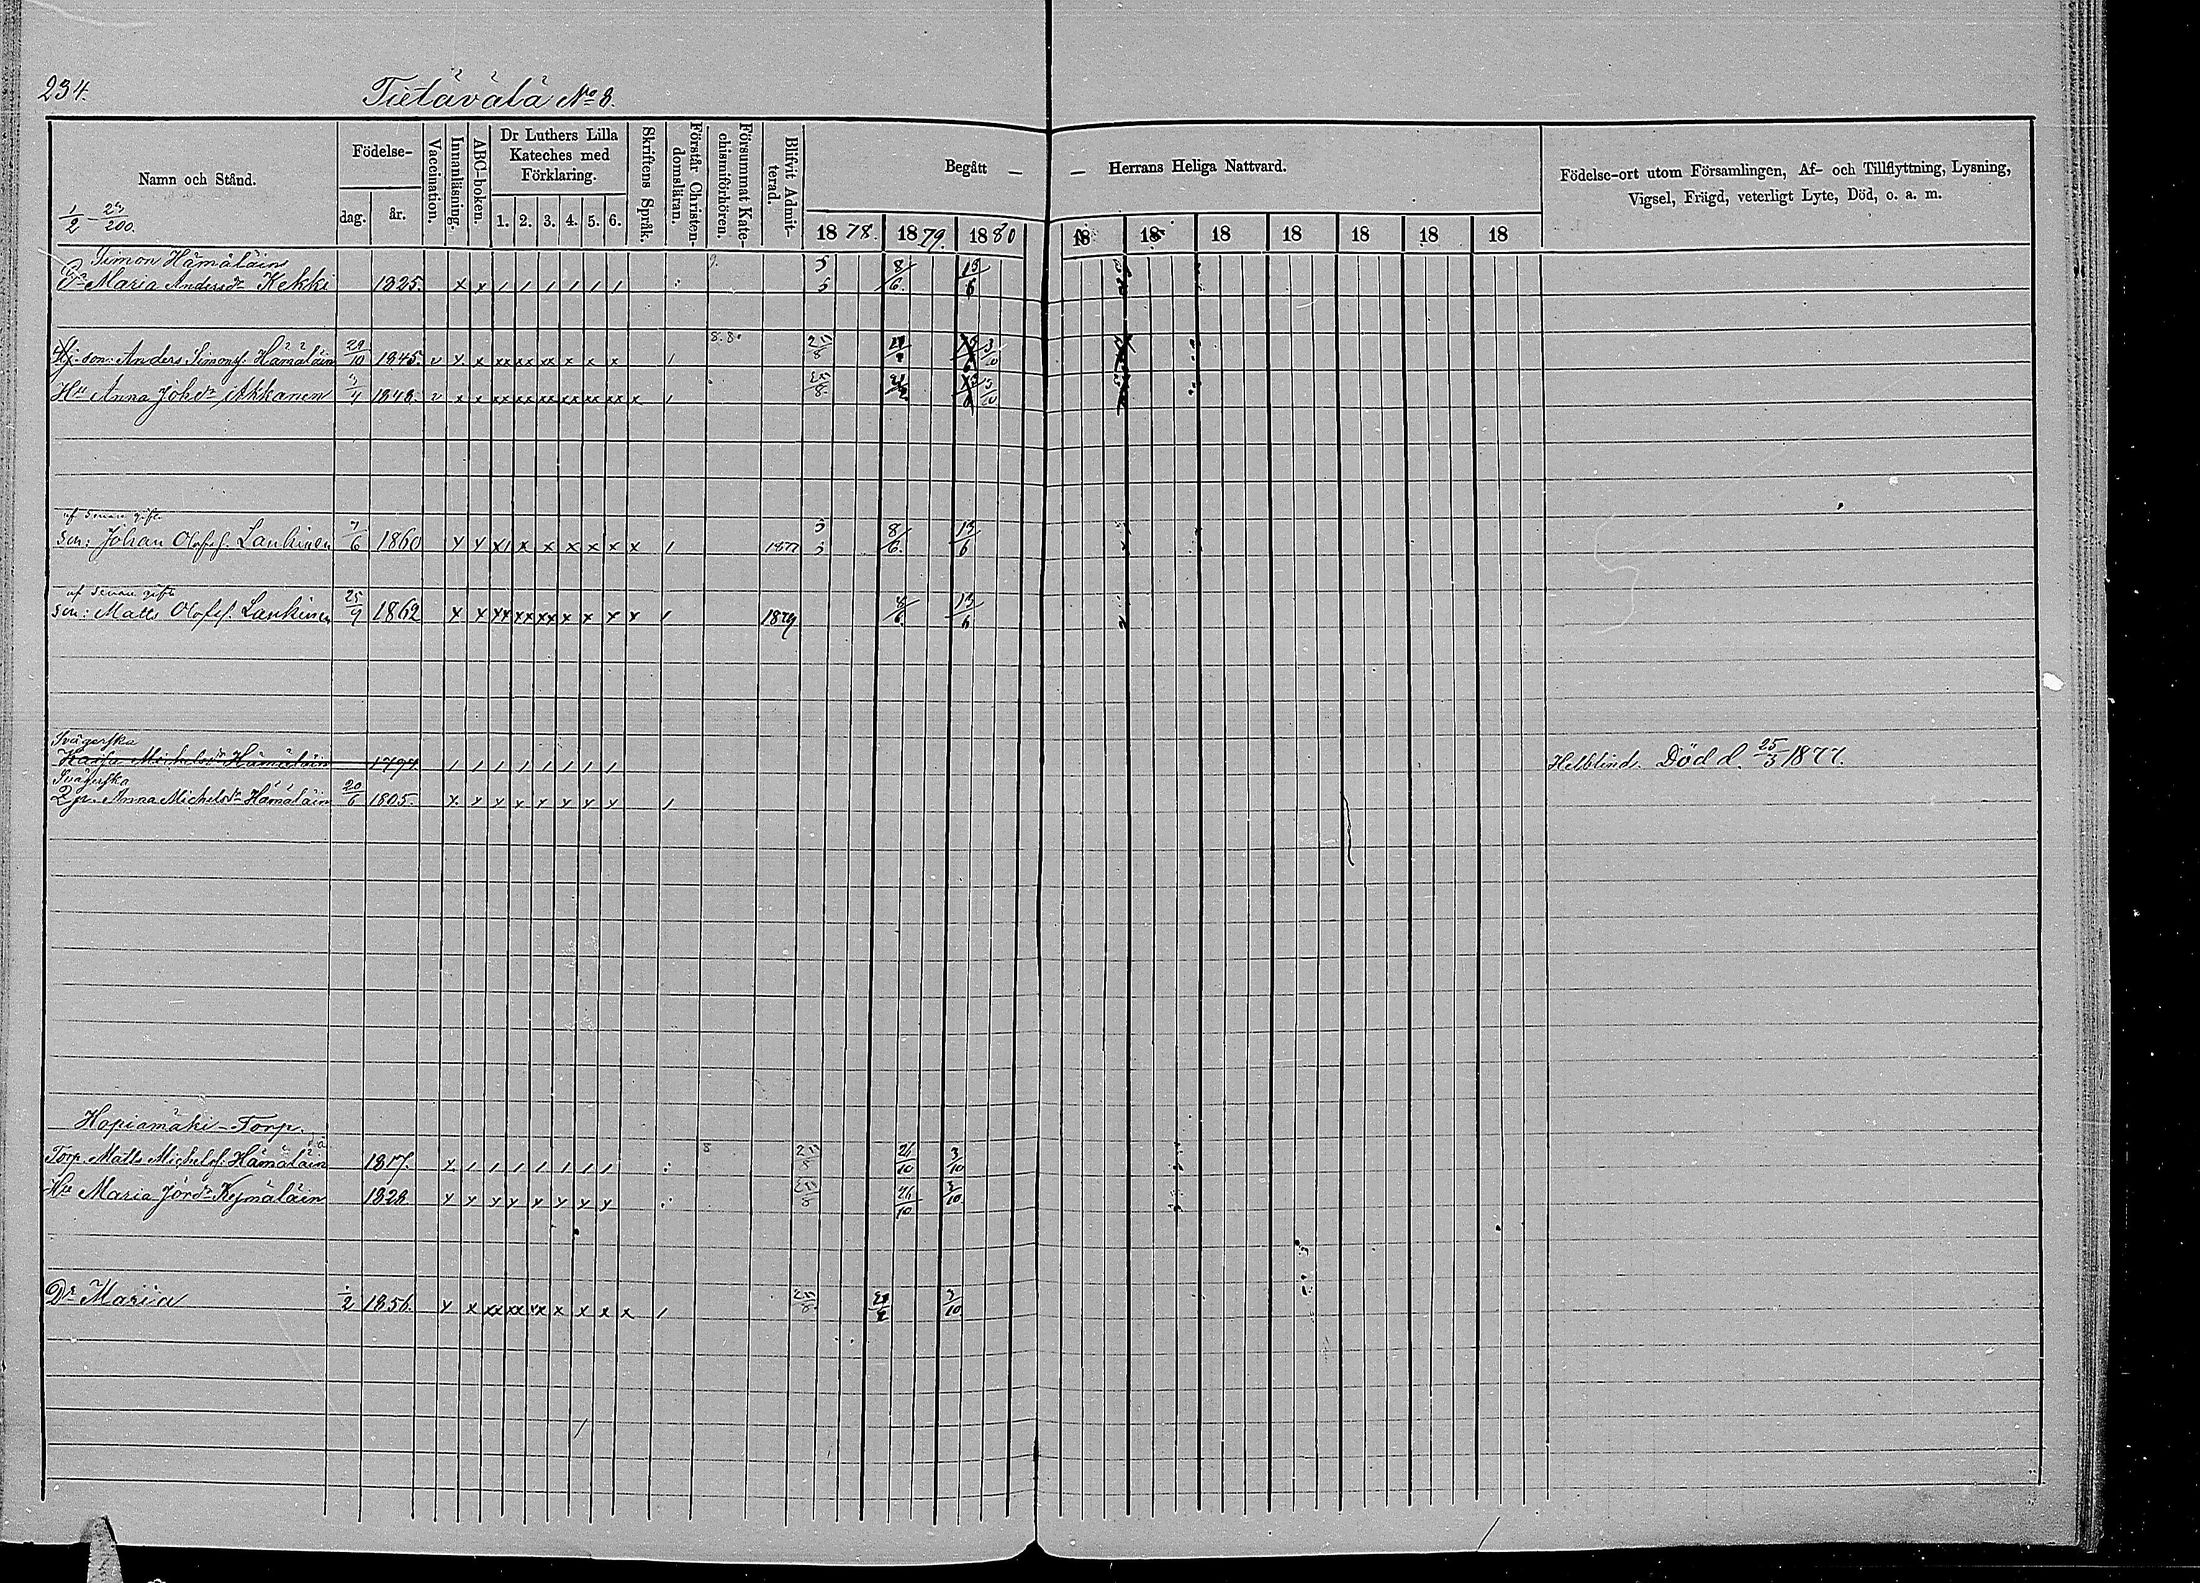 234.
Tietävälä No 8.
Namn och Stånd.
1/2 - 23/200.
Födelse-
dag.
år.
Vaccination.
Innanläsning.
ABC-boken.
Dr Luthers Lilla
Kateches med
Förklaring.
1. 2. 3. 4. 5. 6.
Skriftens Språk.
Förstår Christen-
domsläran.
Försummat Kate-
chismiförhören.
Blifvit Admit-
terad.
Begått — — Herrans Heliga Nattvard.
1878. 1879. 1880 18 18 18 18 18 18 18
Födelse-ort utom Församlingen, Af- och Tillflyttning, Lysning,
Vigsel, Frägd, veterligt Lyte, Död, o. a. m.
Simon Hämäläins
Maria Andersdr Kekki 1825. x x / / / / / / 8/6 13/6
8.80
son: Anders Simonsf. Hämäläin 29/10 1845. v x x xx xx xx x x x / 25/8 3/10
Hu Anna Johdr Akkanen 1848. v x x xx xx xx xx xx xx x / 25/8 3/10
af senan gifte
son: Johan Olofsf. Laukinen 1860 x x x/ x x x x x x / 1877 8/6 13/6
af senan gifte
son: Matts Olofsf. Laukinen 25/9 1862 x x xx xx xx x x x x / 1879 8/6 13/6
Svägerska
Kaisa Michelsdr Hämäläin 1797 / / / / / / / / Helblind. Död d. 25/3 1877.
Svägerska
Anna Michelsdr Hämäläin 20/6 1805. x x x x x x x x /
Hapiamäki-Torp.
Torp. Matts Michelsf. Hämäläin 1817. x / / / / / / / 25/8 26/10 3/10
Hu Maria Jördr Kejmäläin 1828 x x x x x x x x 25/8 26/10 3/10
Dr Maria 1/2 1856. x x xx xx xx x x x x / 25/8 3/10